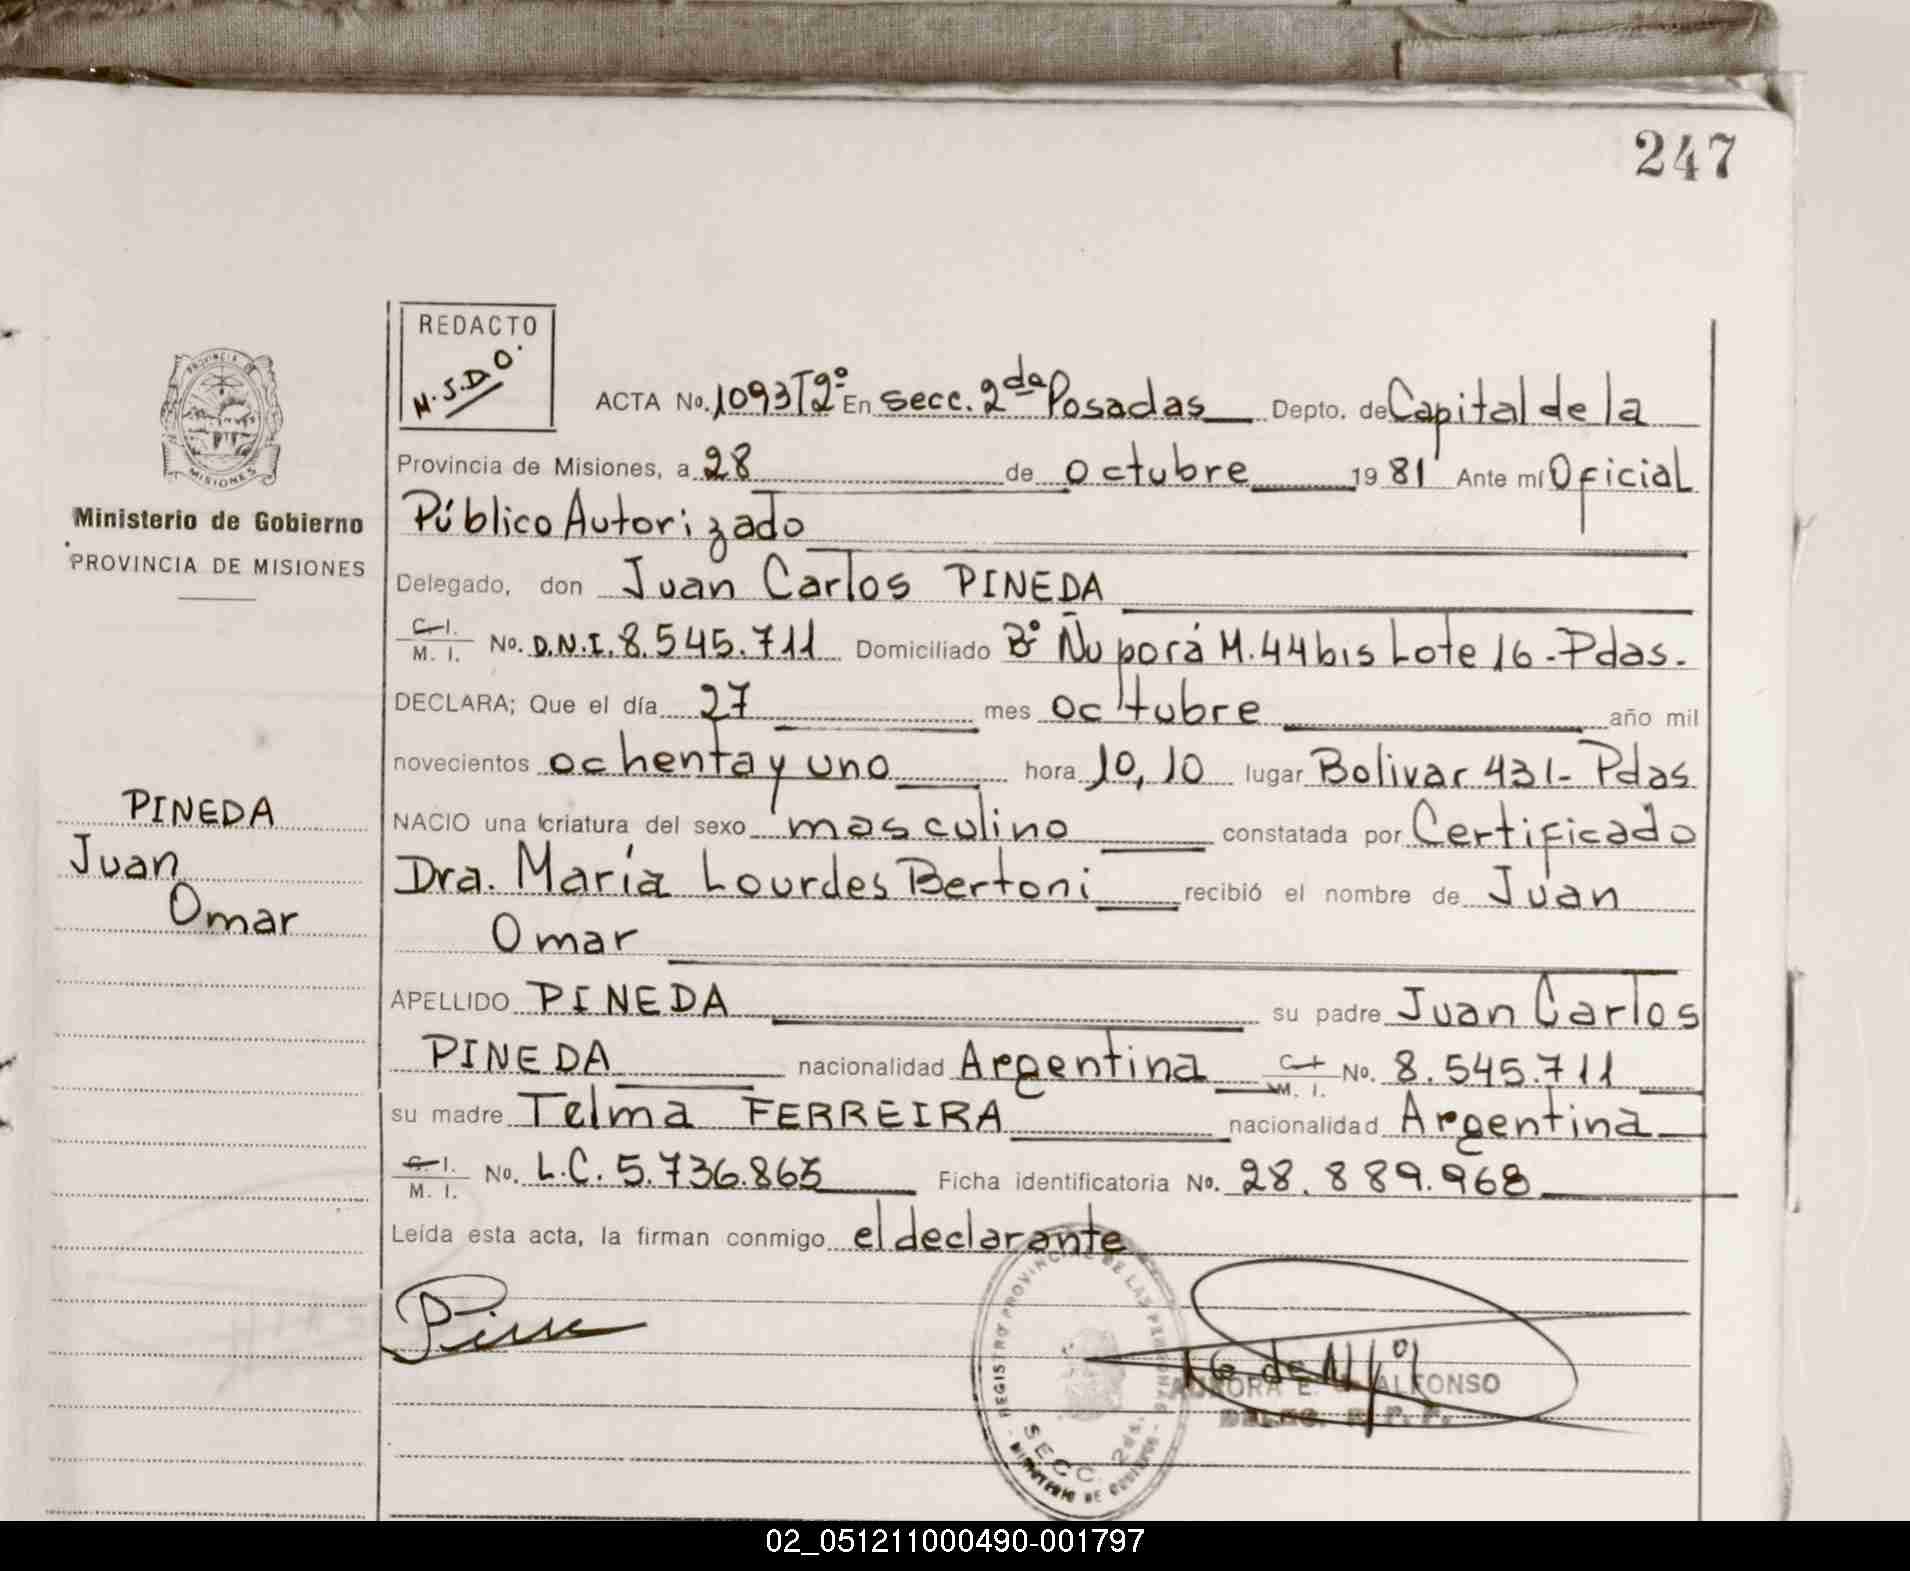 247
REDACTO
M.S.D.O.
ACTA No. 1093 T2º En secc. 2da Posadas Depto. de Capital de la
Provincia de Misiones, a 28 de octubre 1981 Ante mí Oficial
Público Autorizado
Delegado, don Juan Carlos PINEDA
C.I.
M. I. No. D.N.I. 8.545.711 Domiciliado Bº Ñu porá M.44 bis Lote 16 - Pdas.
DECLARA; Que el día 27 mes octubre año mil
novecientos ochenta y uno hora 10,10 lugar Bolivar 431- Pdas
NACIO una criatura del sexo masculino constatada por Certificado
Dra. María Lourdes Bertoni recibió el nombre de Juan
Omar
APELLIDO PINEDA su padre Juan Carlos
PINEDA nacionalidad Argentina C.I. M. I. No. 8.545.711
su madre Telma FERREIRA nacionalidad Argentina
C.I.
M. I. No. L.C. 5.736.863 Ficha identificatoria No. 28.889.968
Leída esta acta, la firman conmigo el declarante
PROVINCIA DE
MISIONES
Ministerio de Gobierno
PROVINCIA DE MISIONES
PINEDA
Juan
Omar
REGISTRO PROVINCIAL DE LAS PERSONAS
SECC. 2da.
MINISTERIO DE GOBIERNO
AURORA E. ALFONSO
DELEG. R. P. P.
02_051211000490-001797